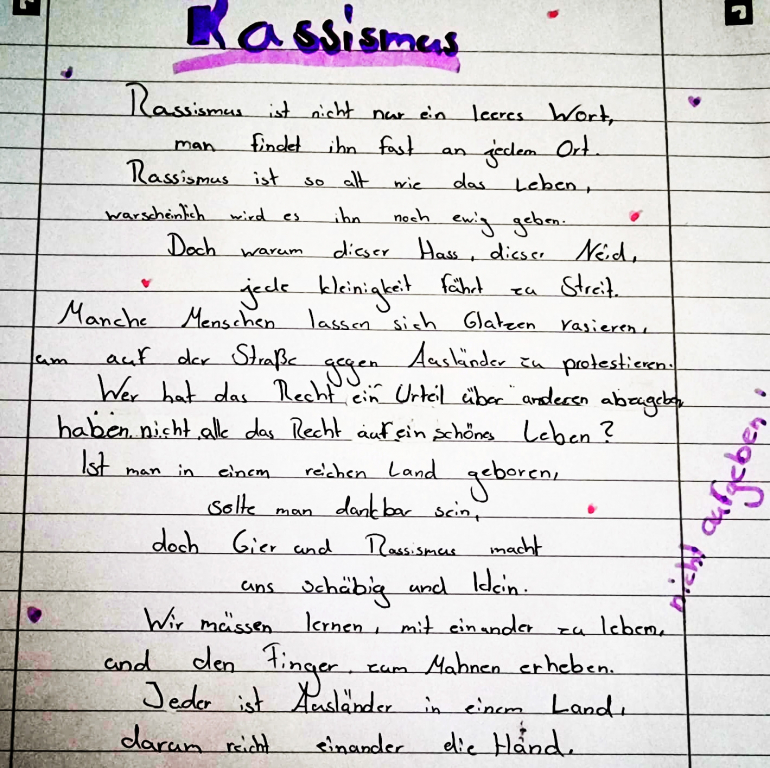 Rassismus
Rassismus ist nicht nur ein leeres Wort,
man findet ihn fast an jedem Ort.
Rassismus ist so alt wie das Leben,
warscheinlich wird es ihn noch ewig geben.
Doch warum dieser Hass, dieser Neid,
jede kleinigkeit führt zu Streit.
Manche Menschen lassen sich Glatzen rasieren,
um auf der Straße gegen Ausländer zu protestieren.
Wer hat das Recht ein Urteil über anderen abzugeben
haben nicht alle das Recht auf ein schönes Leben?
Ist man in einem reichen Land geboren,
sollte man dankbar sein,
doch Gier und Rassismus macht
uns schäbig und klein.
Wir müssen lernen, mit einander zu leben,
und den Finger zum Mahnen erheben.
Jeder ist Ausländer in einem Land,
darum reicht einander die Händ.
nicht aufgeben!